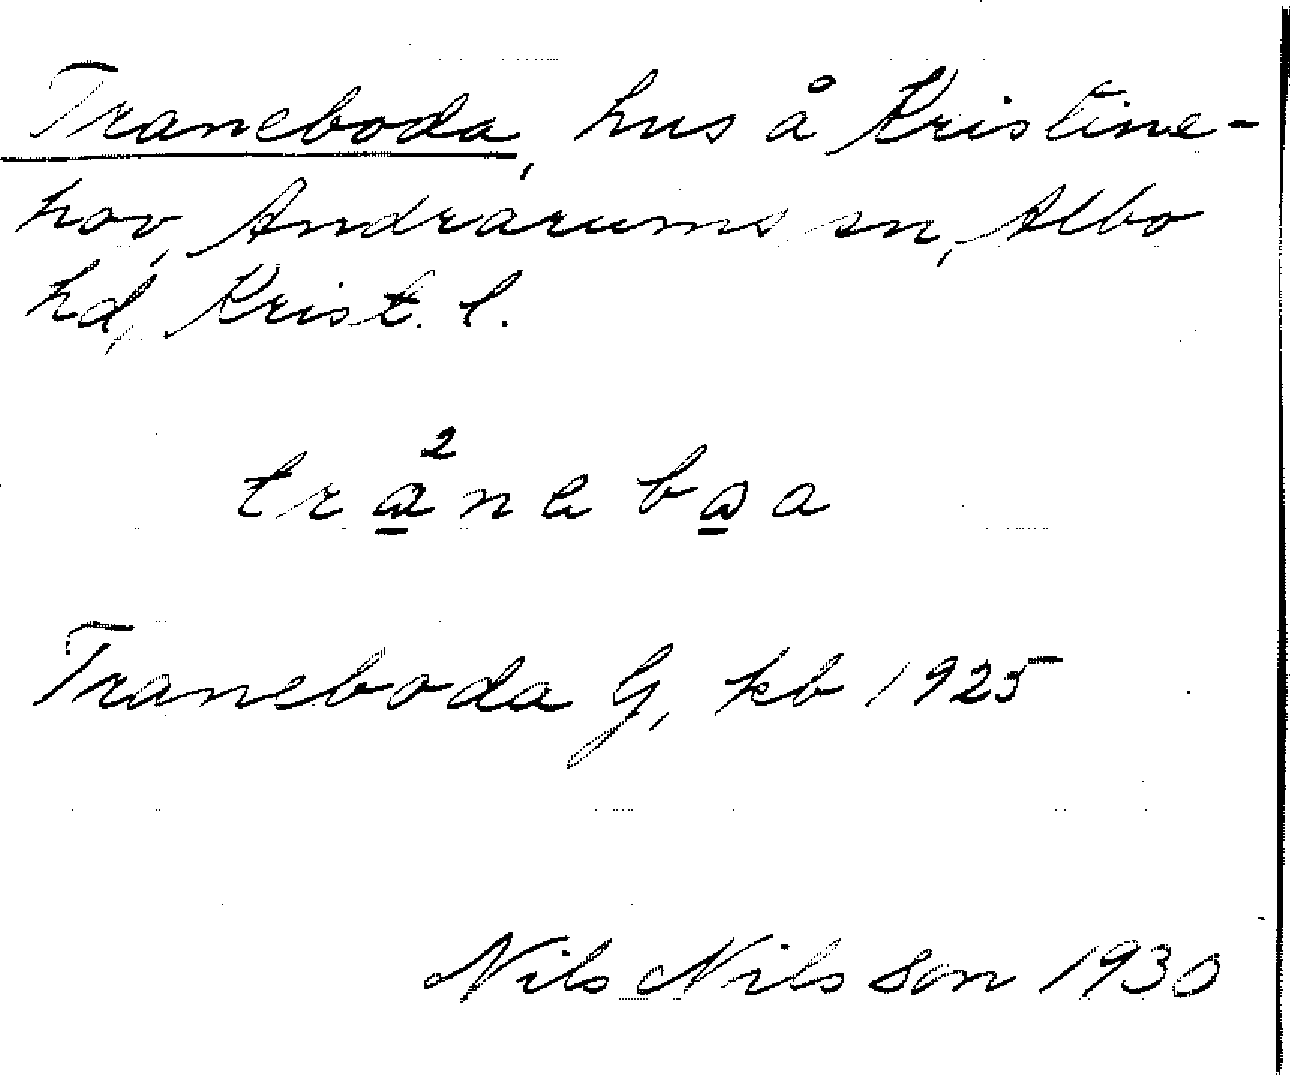 Traneboda, hus å Kristine-
hov, Andrarums sn, Albo
hd, Krist. l.
Traneboda G, kb 1925
Nils Nilsson 1930